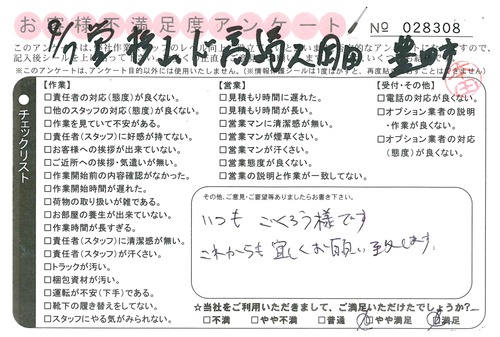 お客様不満足度アンケート
№ 028308
チェックリスト
【作業】
□責任者の対応(態度)が良くない。
□他のスタッフの対応(態度)が良くない。
□作業を見ていて不安がある。
□責任者(スタッフ)に好感が持てない。
□お客様への挨拶が出来ていない。
□ご近所への挨拶・気遣いが無い。
□作業開始前の内容確認がなかった。
□作業開始時間が遅れた。
□荷物の取り扱いが雑である。
□お部屋の養生が出来ていない。
□作業時間が長すぎる。
□責任者(スタッフ)に清潔感が無い。
□責任者(スタッフ)が汗くさい。
□トラックが汚い。
□梱包資材が汚い。
□運転が不安(下手)である。
□靴下の履き替えをしてない。
□スタッフにやる気がみられない。
【営業】
□見積もり時間に遅れた。
□見積もり時間が長い。
□営業マンに清潔感が無い。
□営業マンが煙草くさい。
□営業マンが汗くさい。
□営業態度が良くない。
□営業の説明と作業が一致してない。
【受付・その他】
□電話の対応が良くない。
□オプション業者の説明
・作業が良くない。
□オプション業者の対応
(態度)が良くない。
その他、ご意見・ご要望等ありましたらお書き下さい。
いつも ごくろう様です
これからも 宜しくお願い致します。
☆当社をご利用いただきまして、ご満足いただけたでしょうか?
□不満 □やや不満 □普通 □やや満足 □満足